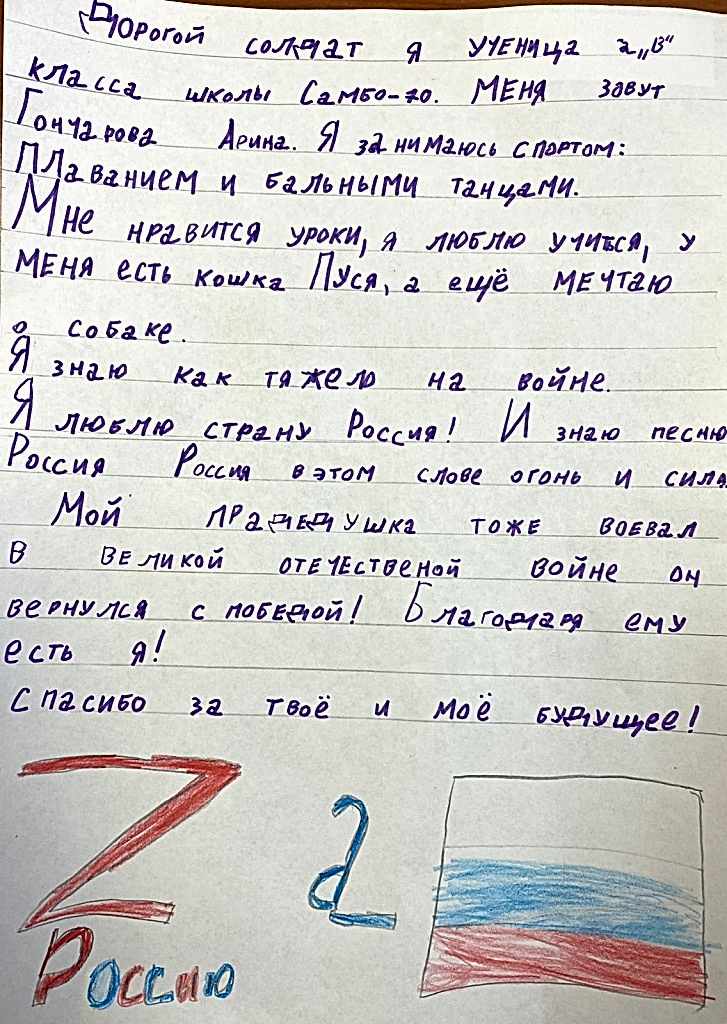 Дорогой солдат я ученица 2 „В"
класса школы Самбо-70. Меня зовут
Гончарова Арина. Я занимаюсь спортом:
плаванием и бальными танцами.
Мне нравится уроки, я люблю учиться, у
меня есть кошка Пуся, а ещё мечтаю
о собаке.
Я знаю как тяжело на войне.
Я люблю страну Россия! И знаю песню
Россия Россия в этом слове огонь и сила
Мой прадедушка тоже воевал
в великой отечественой войне он
вернулся с победой! Благодаря ему
есть я!
Спасибо за твоё и моё будущее!
Z а
Россию